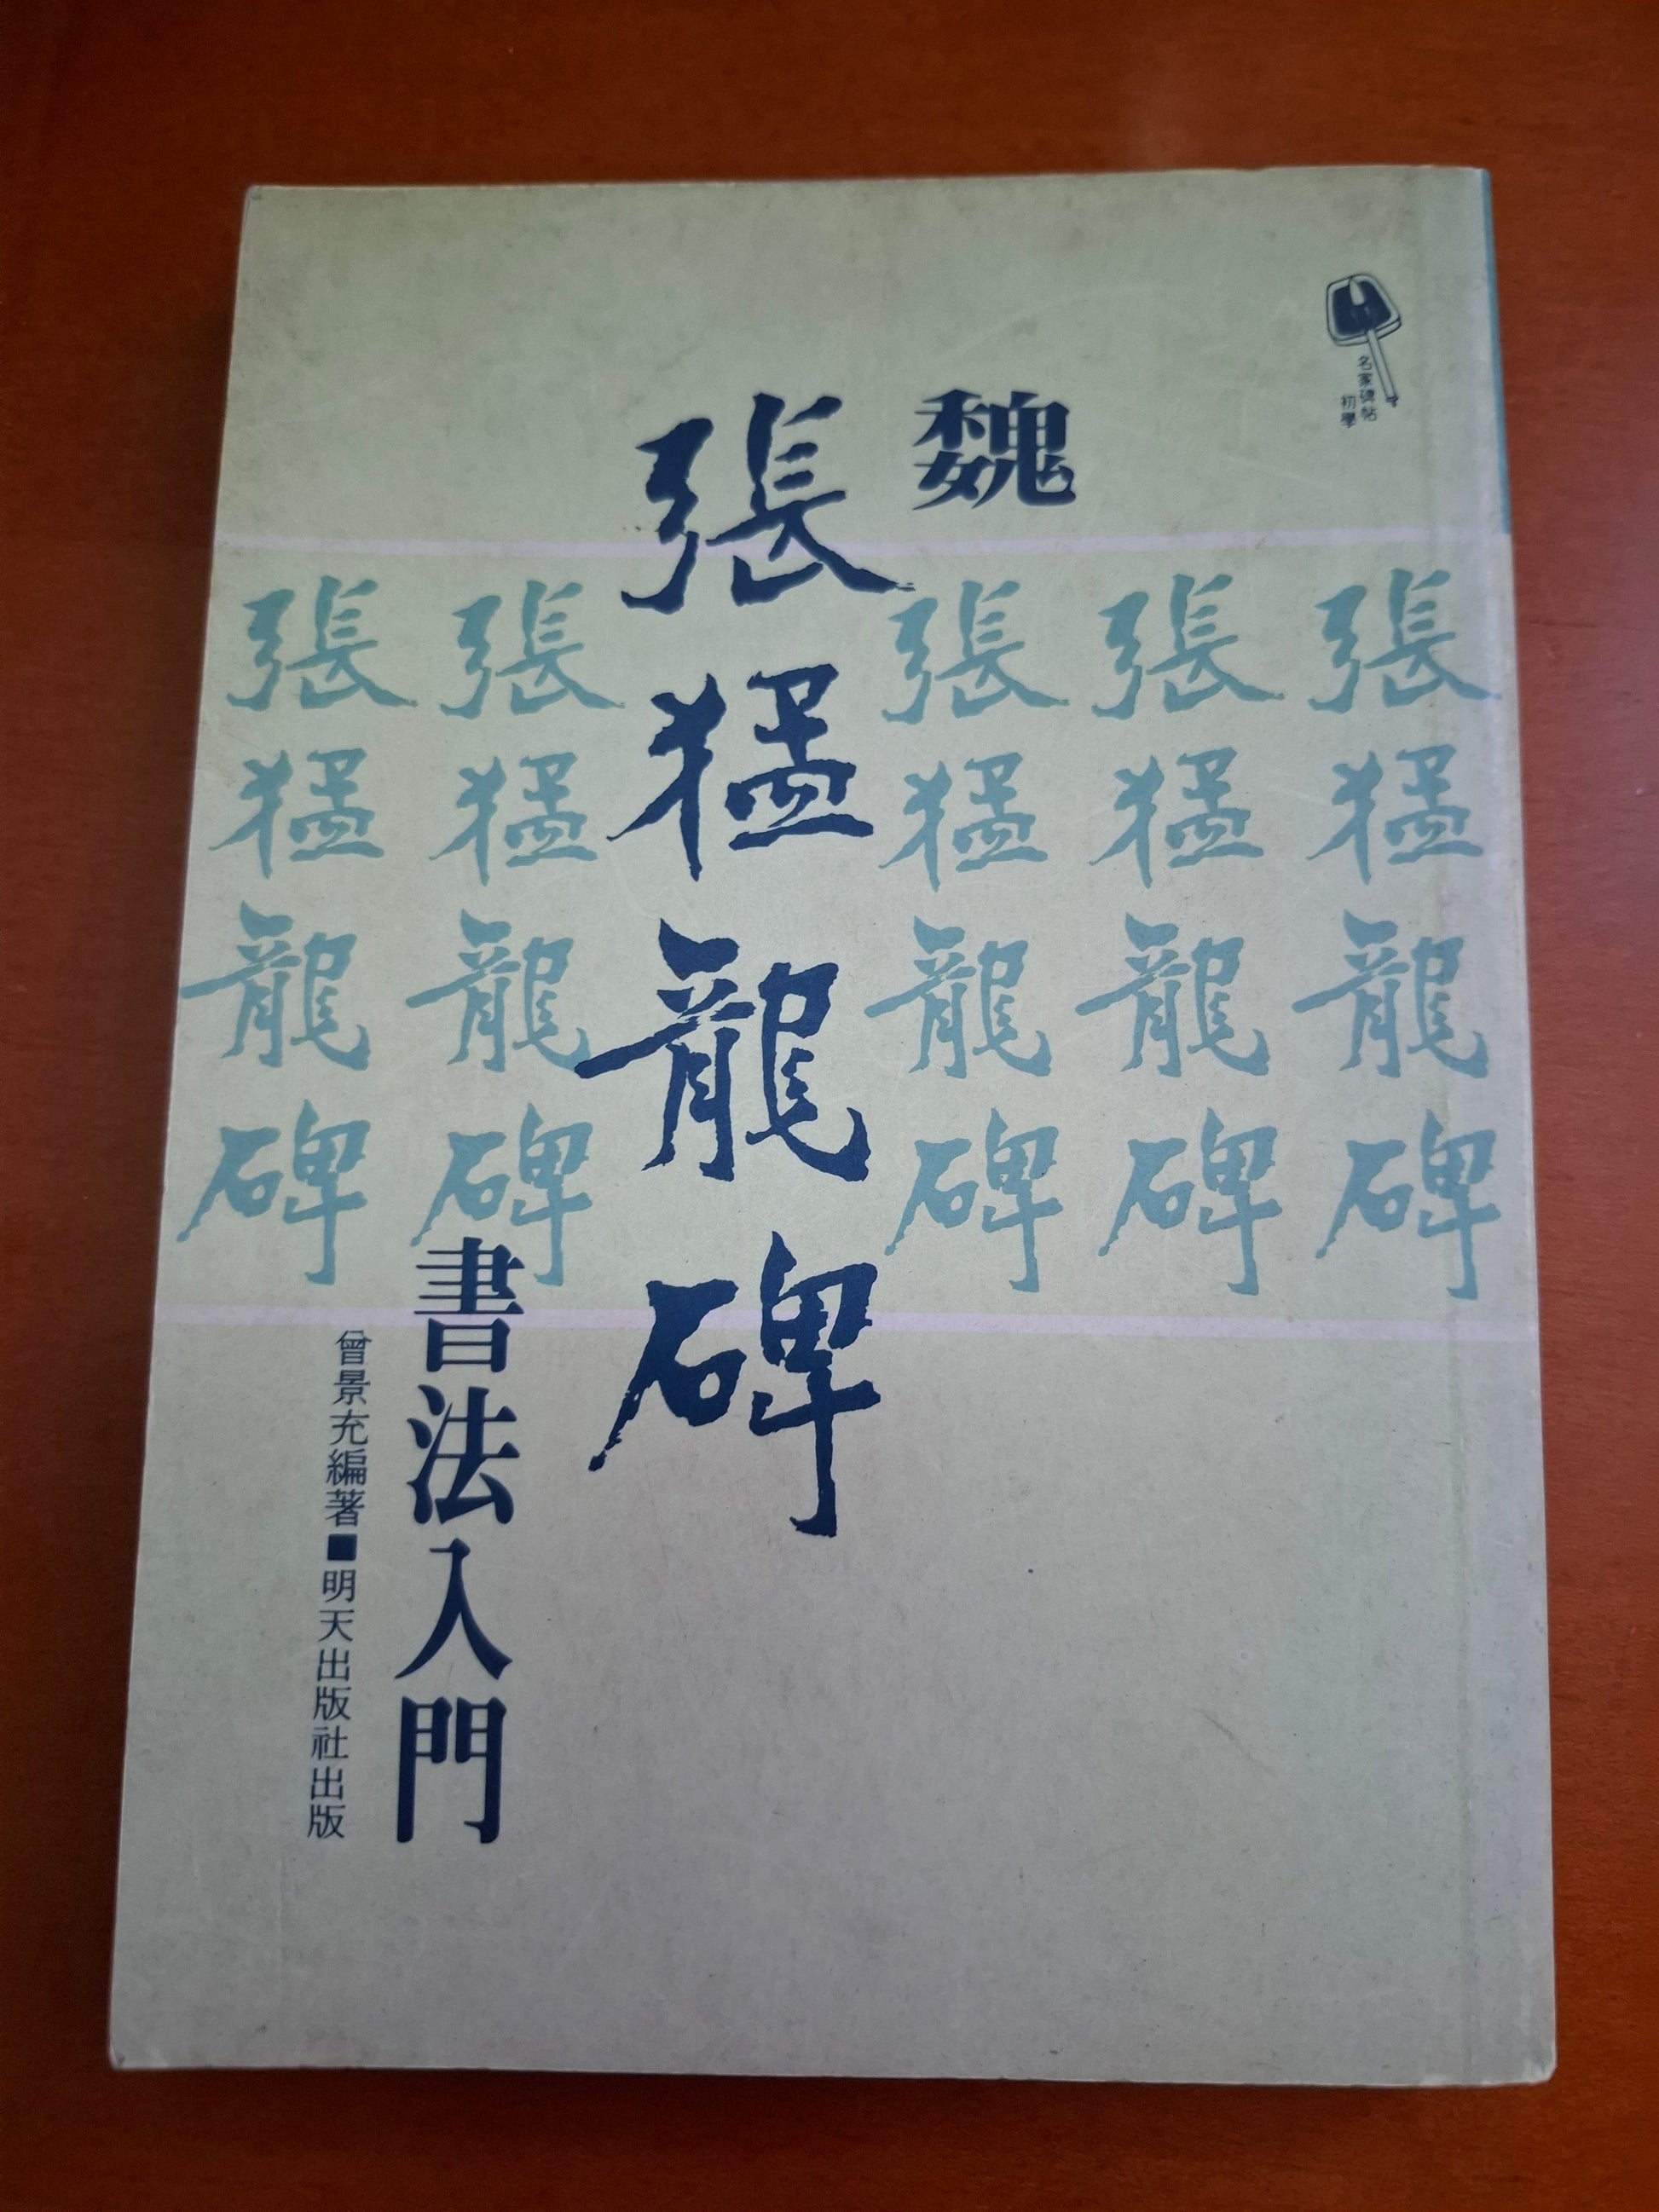 名家碑帖
初學
魏
張猛龍碑
張猛龍碑
張猛龍碑
張猛龍碑
張猛龍碑
張猛龍碑
書法入門
曾景充編著■明天出版社出版